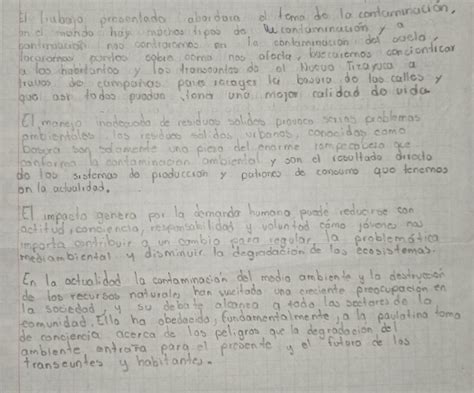 El trabajo presentado abordara el tema de la contaminación,
en el mundo hay muchos tipos de contaminación y a
continuación nos centraremos en la contaminación del suelo,
puntos sobre como nos afecta, buscaremos concientizar
a los habitantes y los transeuntes de el Nuevo Tizayuca a
traves de campañas para recoger la basura de las calles y
que asi todos puedan tener una mejor calidad de vida.
El manejo inadecuado de residuos solidos provoca serios problemas
ambientales los residuos solidos, urbanos, conocidos como
basura son solamente una pieza del enorme rompecabeza que
conforma la contaminación ambiental y son el resultado directo
de los sistemas de producción y patrones de consumo que tenemos
en la actualidad.
El impacto genera por la demanda humana puede reducirse con
actitud, conciencia, responsabilidad y voluntad cómo jóvenes nos
importa contribuir a un cambio para regular, la problemática
mediambiental y disminuir la degradación de los ecosistemas.
En la actualidad la contaminación del medio ambiente y la destrucción
de los recursos naturales han sucitado una creciente preocupación en
la sociedad, y su debate alcanza a toda las sectores de la
comunidad. Ello ha obedecido, fundamentalmente, a la paulatina toma
de conciencia acerca de los peligros que la degradación del
ambiente entraña para el presente y el futuro de los
transeuntes y habitantes.